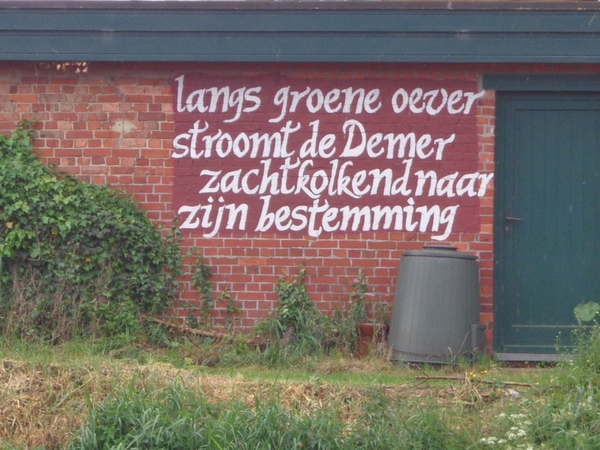 langs groene oever
stroomt de Demer
zachtkolkend naar
zijn bestemming